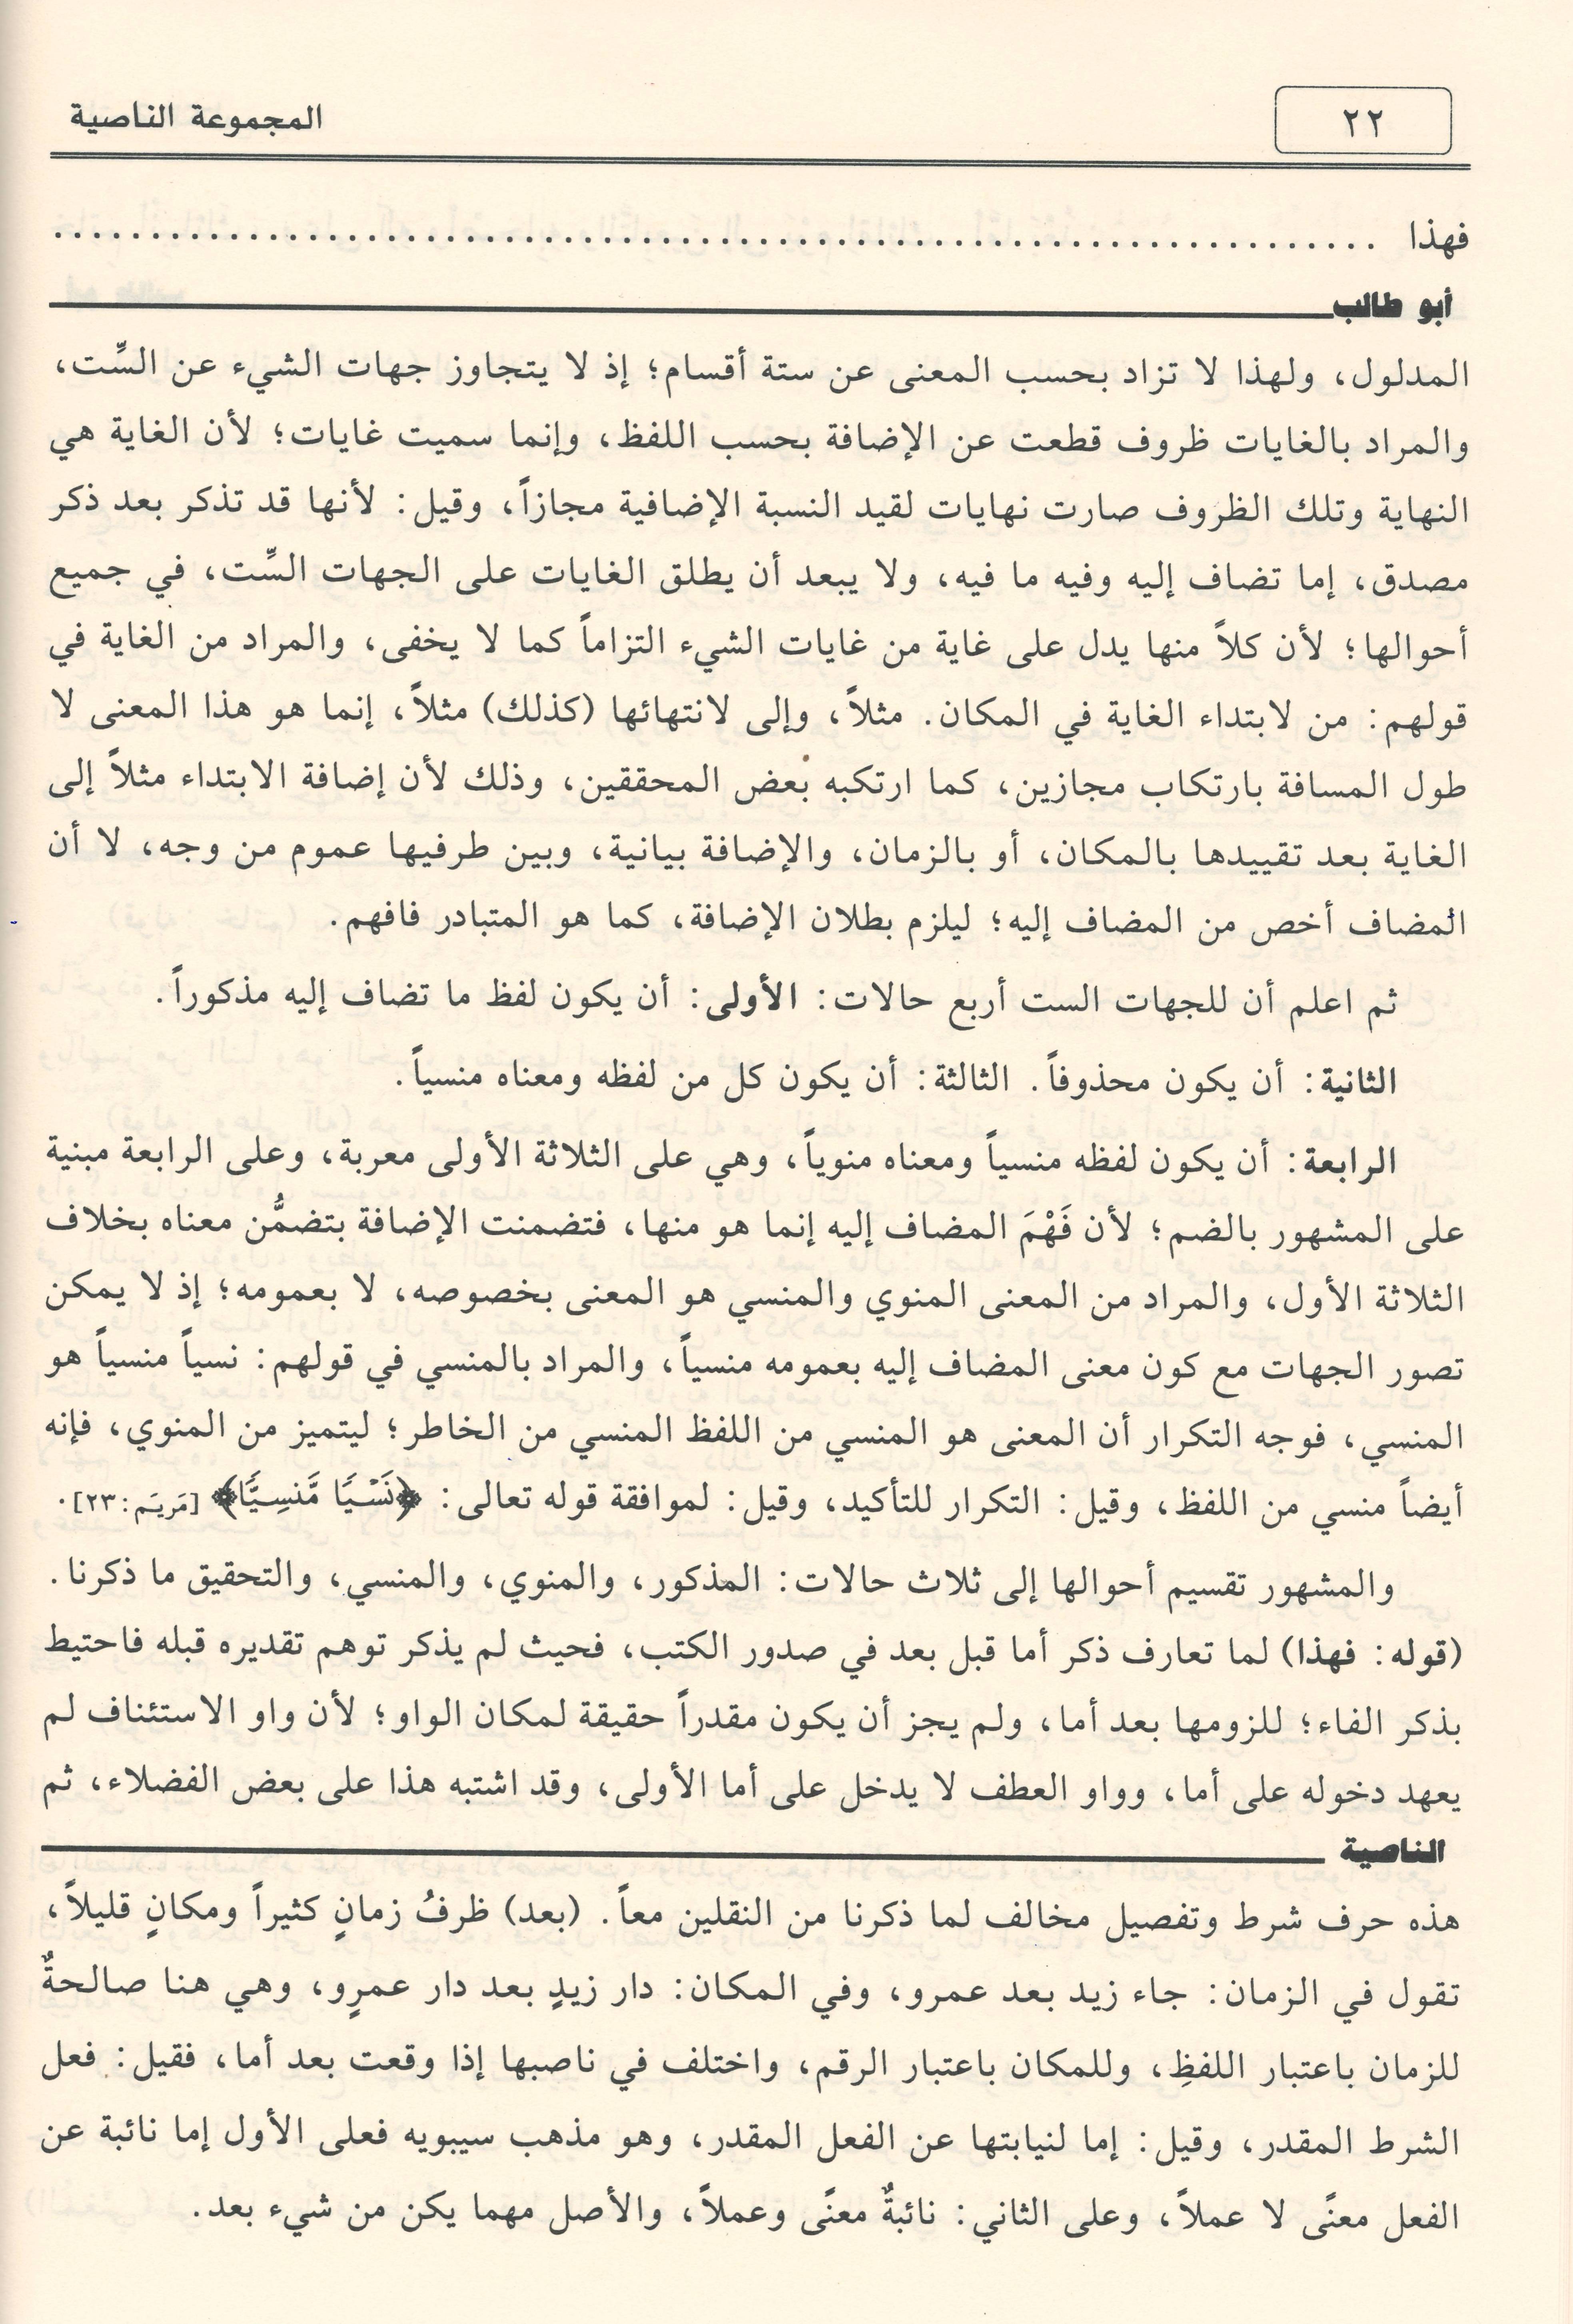 ٢٢
المجموعة الناصية
فهذا ................................................................
أبو طالب
المدلول، ولهذا لا تزاد بحسب المعنى عن ستة أقسام؛ إذ لا يتجاوز جهات الشيء عن السِّت،
والمراد بالغايات ظروف قطعت عن الإضافة بحسب اللفظ، وإنما سميت غايات؛ لأن الغاية هي
النهاية وتلك الظروف صارت نهايات لقيد النسبة الإضافية مجازاً، وقيل: لأنها قد تذكر بعد ذكر
مصدق، إما تضاف إليه وفيه ما فيه، ولا يبعد أن يطلق الغايات على الجهات السِّت، في جميع
أحوالها؛ لأن كلاً منها يدل على غاية من غايات الشيء التزاماً كما لا يخفى، والمراد من الغاية في
قولهم: من لابتداء الغاية في المكان. مثلاً، وإلى لانتهائها (كذلك) مثلاً، إنما هو هذا المعنى لا
طول المسافة بارتكاب مجازين، كما ارتكبه بعض المحققين، وذلك لأن إضافة الابتداء مثلاً إلى
الغاية بعد تقييدها بالمكان، أو بالزمان، والإضافة بيانية، وبين طرفيها عموم من وجه، لا أن
المضاف أخص من المضاف إليه؛ ليلزم بطلان الإضافة، كما هو المتبادر فافهم.
ثم اعلم أن للجهات الست أربع حالات: الأولى: أن يكون لفظ ما تضاف إليه مذكوراً.
الثانية: أن يكون محذوفاً. الثالثة: أن يكون كل من لفظه ومعناه منسياً.
الرابعة: أن يكون لفظه منسياً ومعناه منوياً، وهي على الثلاثة الأولى معربة، وعلى الرابعة مبنية
على المشهور بالضم؛ لأن فَهْمَ المضاف إليه إنما هو منها، فتضمنت الإضافة بتضمُّن معناه بخلاف
الثلاثة الأول، والمراد من المعنى المنوي والمنسي هو المعنى بخصوصه، لا بعمومه؛ إذ لا يمكن
تصور الجهات مع كون معنى المضاف إليه بعمومه منسياً، والمراد بالمنسي في قولهم: نسياً منسياً هو
المنسي، فوجه التكرار أن المعنى هو المنسي من اللفظ المنسي من الخاطر؛ ليتميز من المنوي، فإنه
أيضاً منسي من اللفظ، وقيل: التكرار للتأكيد، وقيل: لموافقة قوله تعالى: ﴿نَسْيًا مَّنسِيًّا﴾ [مَريَم: ٢٣].
والمشهور تقسيم أحوالها إلى ثلاث حالات: المذكور، والمنوي، والمنسي، والتحقيق ما ذكرنا.
(قوله: فهذا) لما تعارف ذكر أما قبل بعد في صدور الكتب، فحيث لم يذكر توهم تقديره قبله فاحتيط
بذكر الفاء؛ للزومها بعد أما، ولم يجز أن يكون مقدراً حقيقة لمكان الواو؛ لأن واو الاستئناف لم
يعهد دخوله على أما، وواو العطف لا يدخل على أما الأولى، وقد اشتبه هذا على بعض الفضلاء، ثم
الناصية
هذه حرف شرط وتفصيل مخالف لما ذكرنا من النقلين معاً. (بعد) ظرفُ زمانٍ كثيراً ومكانٍ قليلاً،
تقول في الزمان: جاء زيد بعد عمرو، وفي المكان: دار زيدٍ بعد دار عمرٍو، وهي هنا صالحةٌ
للزمان باعتبار اللفظِ، وللمكان باعتبار الرقم، واختلف في ناصبها إذا وقعت بعد أما، فقيل: فعل
الشرط المقدر، وقيل: إما لنيابتها عن الفعل المقدر، وهو مذهب سيبويه فعلى الأول إما نائبة عن
الفعل معنًى لا عملاً، وعلى الثاني: نائبةٌ معنًى وعملاً، والأصل مهما يكن من شيء بعد.